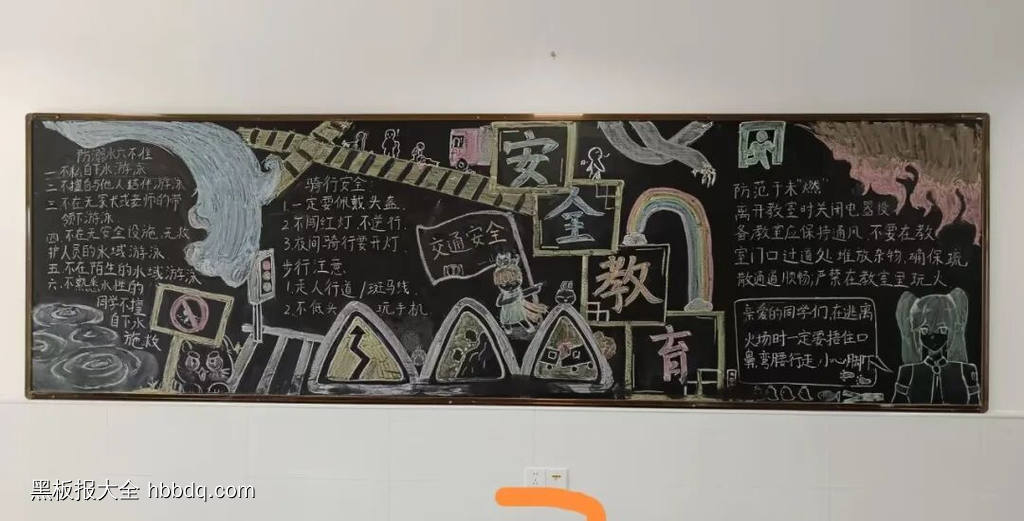 防溺水六不准
一.不私自下水游泳
二.不擅自与他人结伴游泳
三.不在无家长或老师的带
领下游泳
四.不在无安全设施、无救
护人员的水域游泳
五.不在陌生的水域游泳
六.不熟悉水性的
同学不擅
自下水
施救
骑行安全:
1.一定要佩戴头盔.
2.不闯红灯.不逆行.
3.夜间骑行要开灯.
步行注意:
1.走人行道/斑马线.
2.不低头 玩手机
交通安全
安
全
教
育
防范于未"燃"
离开教室时关闭电器设
备,教室应保持通风,不要在教
室门口过道处堆放杂物,确保疏
散通道顺畅,严禁在教室里玩火
亲爱的同学们,在逃离
火场时一定要捂住口
鼻弯腰行走,小心脚下
黑板报大全 hbbdq.com